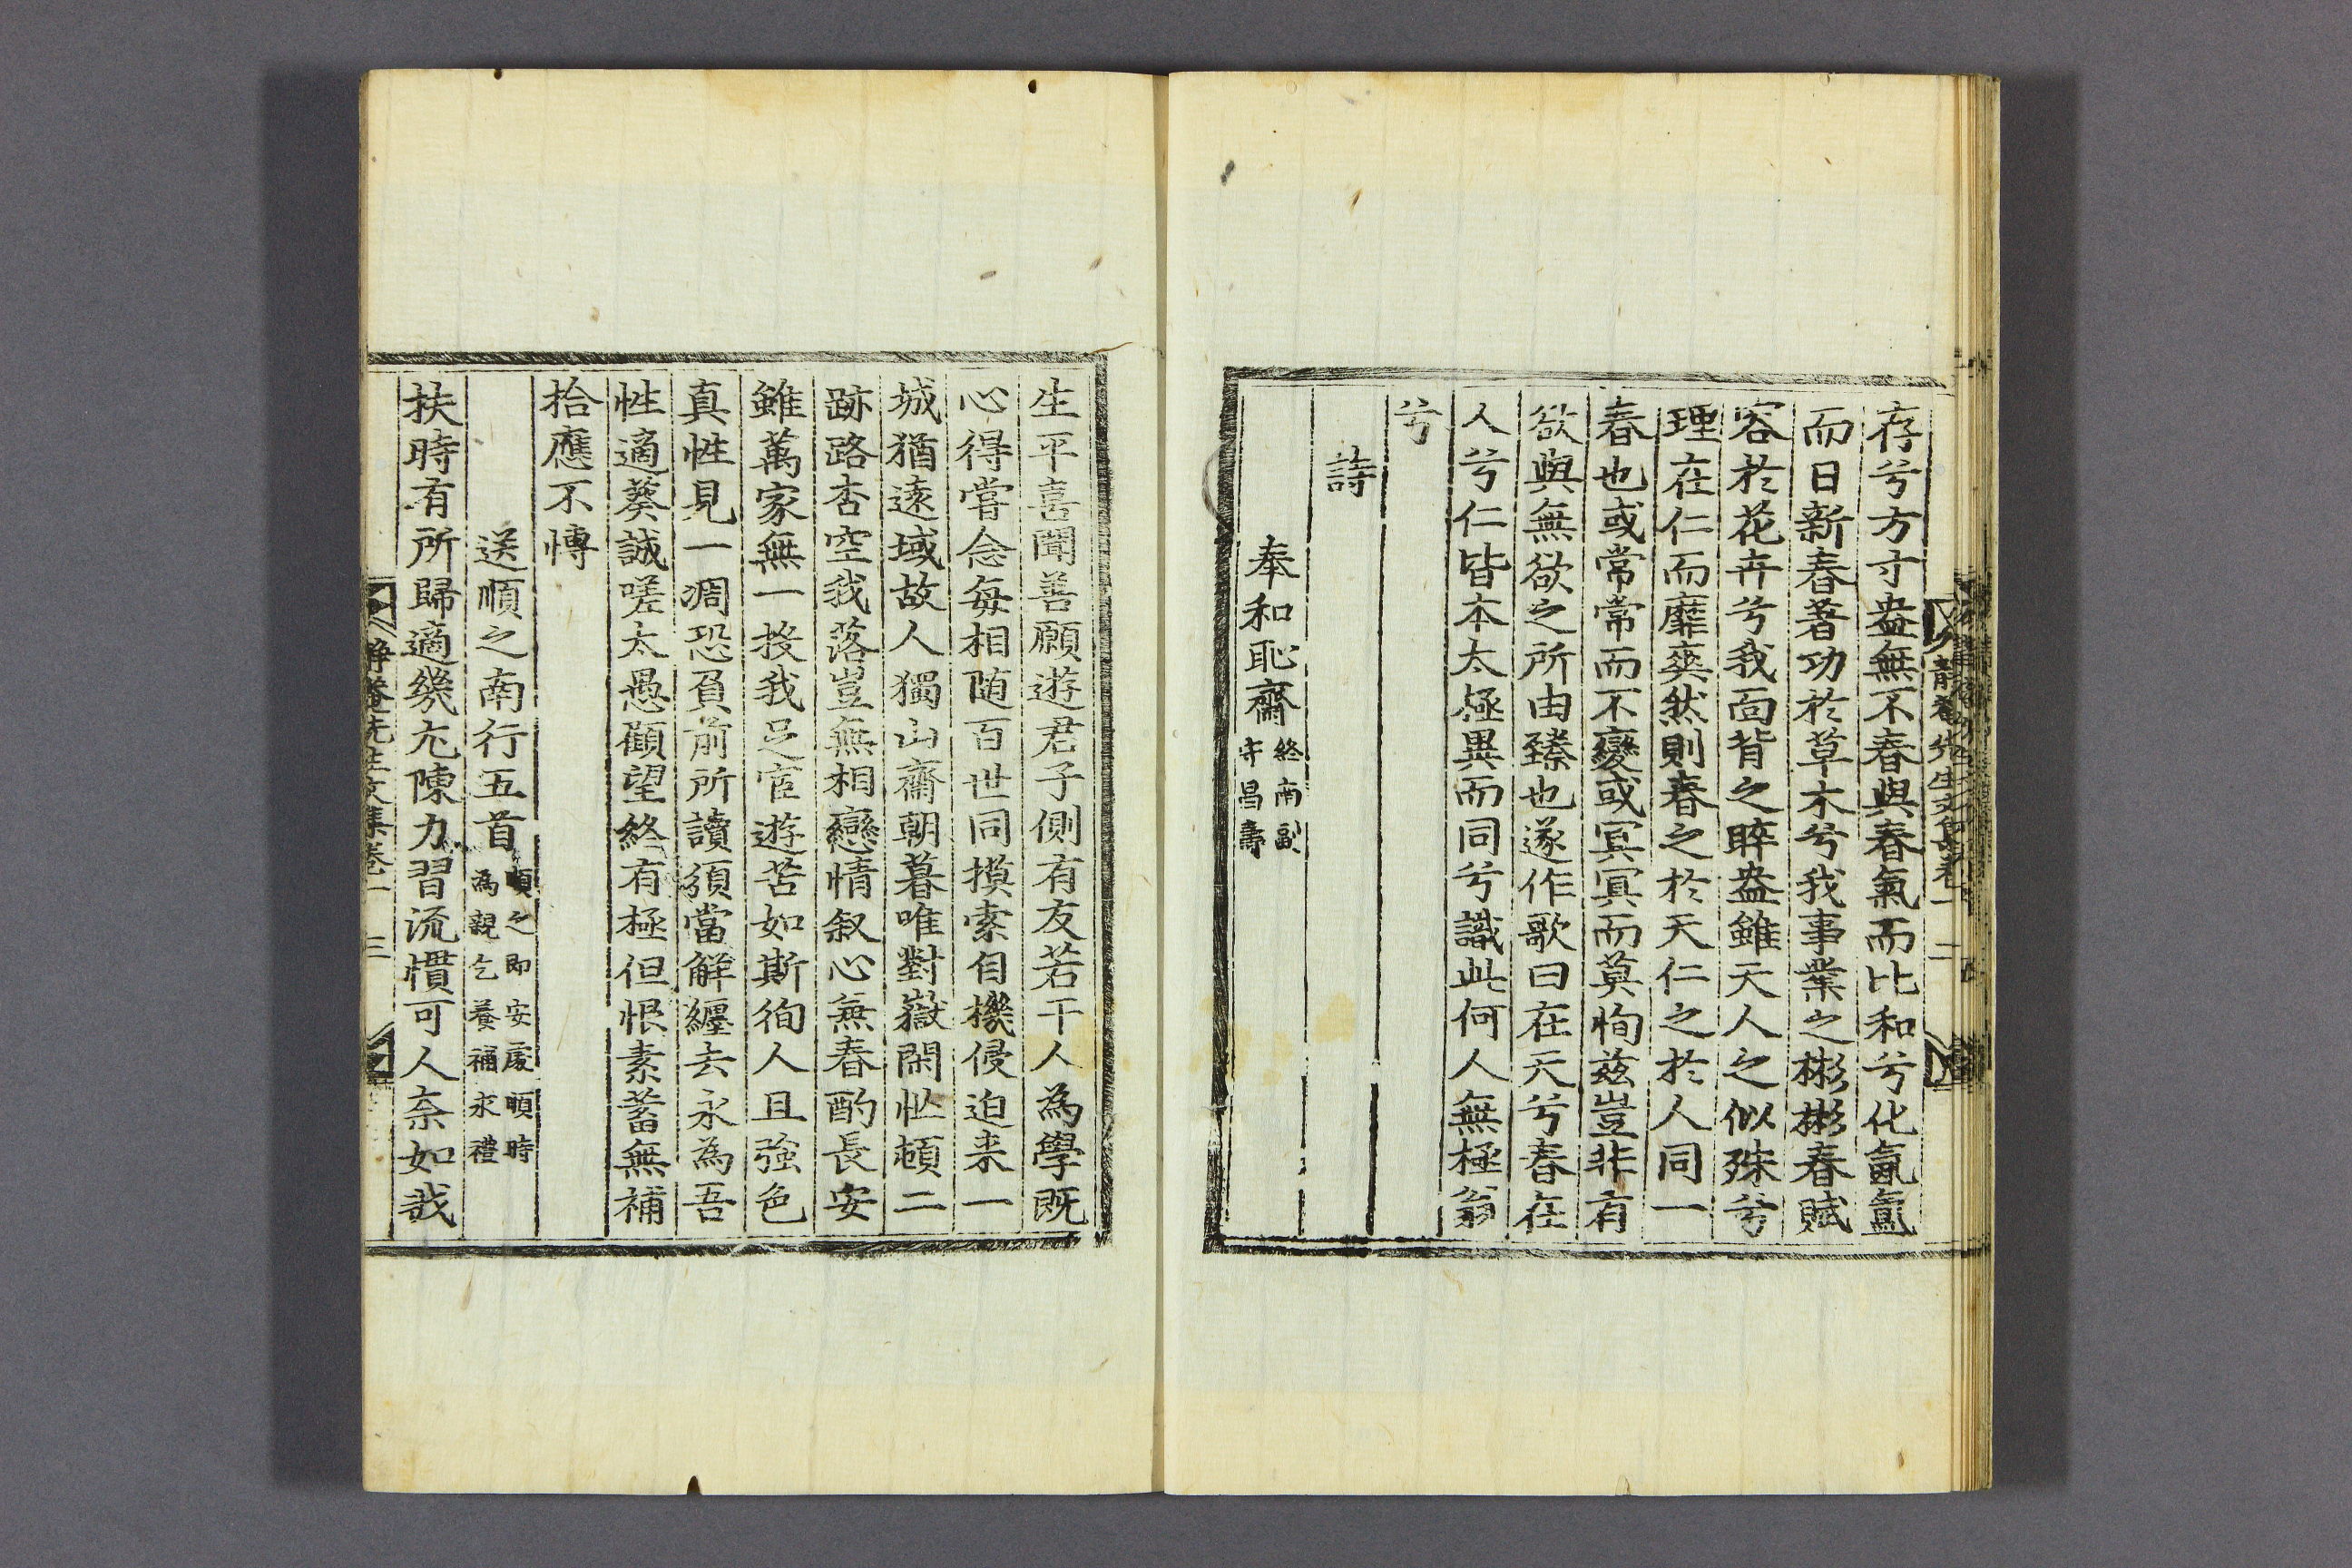 存兮方寸盎無不春與春氣而比和兮化氤氳
而日新春著功於草木兮我事業之彬彬春賦
容於花卉兮我面背之睟盎雖天人之似殊兮
理在仁而靡爽然則春之於天仁之於人同一
春也或常常而不變或冥冥而莫恂玆豈非有
欲與無欲之所由臻也遂作歌曰在天兮春在
人兮仁皆本太極異而同兮識此何人無極翁
兮
詩
奉和恥齋終南副守昌壽
生平喜聞善願遊君子側有友若干人為學旣
心得嘗念每相随百世同摸索自機侵迫来一
城猶遠域故人獨山齋朝暮唯對嶽閑忙頓二
跡路杳空我落豈無相戀情叙心無春酌長安
雖萬家無一投我足宦遊苦如斯徇人且強色
真性見一凋恐負前所讀須當解纏去永為吾
性適葵誠嗟太愚顧望終有極但恨素蓄無補
拾應不慱
送順之南行五首順之即安處順時為親乞養補求禮
扶時有所歸適幾尢陳力習流慣可人奈如㦲
靜菴先生文集卷一 三